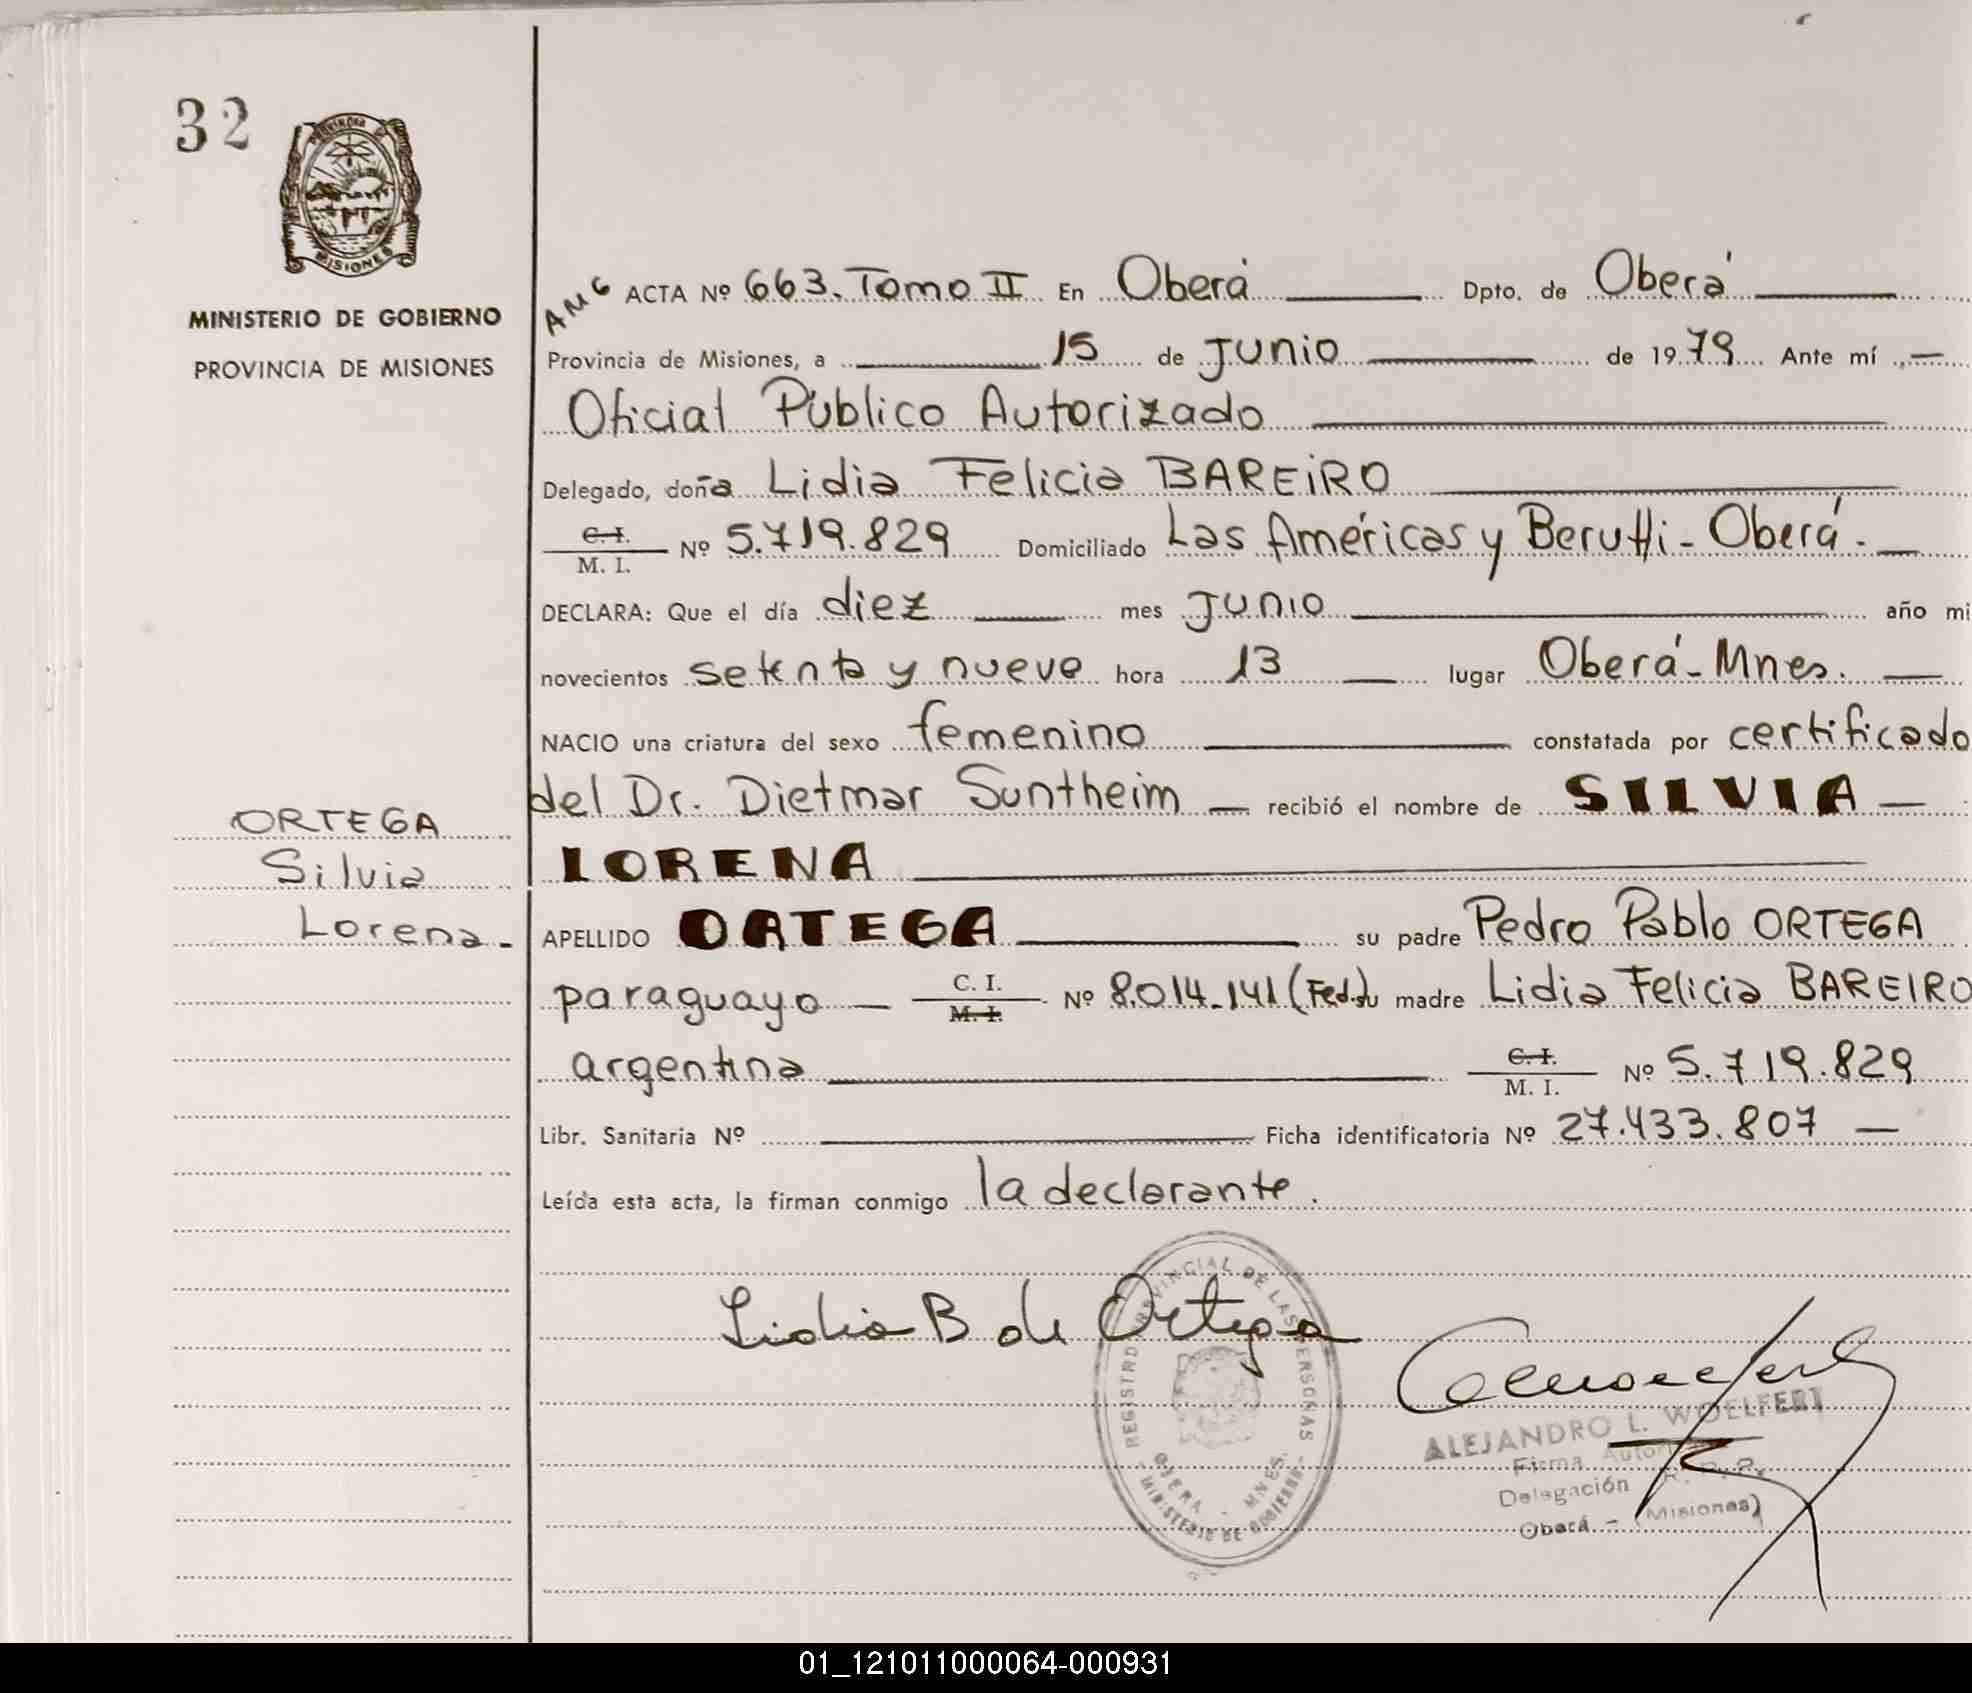 32
PROVINCIA DE
MISIONES
MINISTERIO DE GOBIERNO
PROVINCIA DE MISIONES
AMG ACTA Nº 663. Tomo II En Oberá Dpto. de Oberá
Provincia de Misiones, a 15 de Junio de 1979 Ante mí
Oficial Público Autorizado
Delegado, doña Lidia Felicia BAREIRO
C. I.
M. I. Nº 5.719.829 Domiciliado Las Américas y Berutti - Oberá.
DECLARA: Que el día diez mes Junio año mi
novecientos setenta y nueve hora 13 lugar Oberá - Mnes.
NACIO una criatura del sexo femenino constatada por certificado
del Dr. Dietmar Suntheim recibió el nombre de SILVIA
LORENA
APELLIDO ORTEGA su padre Pedro Pablo ORTEGA
paraguayo C. I.
M. I. Nº 8.014.141 (Fed.) su madre Lidia Felicia BAREIRO
argentina C. I.
M. I. Nº 5.719.829
Libr. Sanitaria Nº Ficha identificatoria Nº 27.433.807
Leída esta acta, la firman conmigo la declarante.
ORTEGA
Silvia
Lorena.
Lidia B de Ortega
REGISTRO PROVINCIAL DE LAS PERSONAS
OBERA - MNES.
MINISTERIO DE GOBIERNO
ALEJANDRO L. WOELFERT
Firma
Delegación R. P. P.
Oberá - (Misiones)
01_121011000064-000931